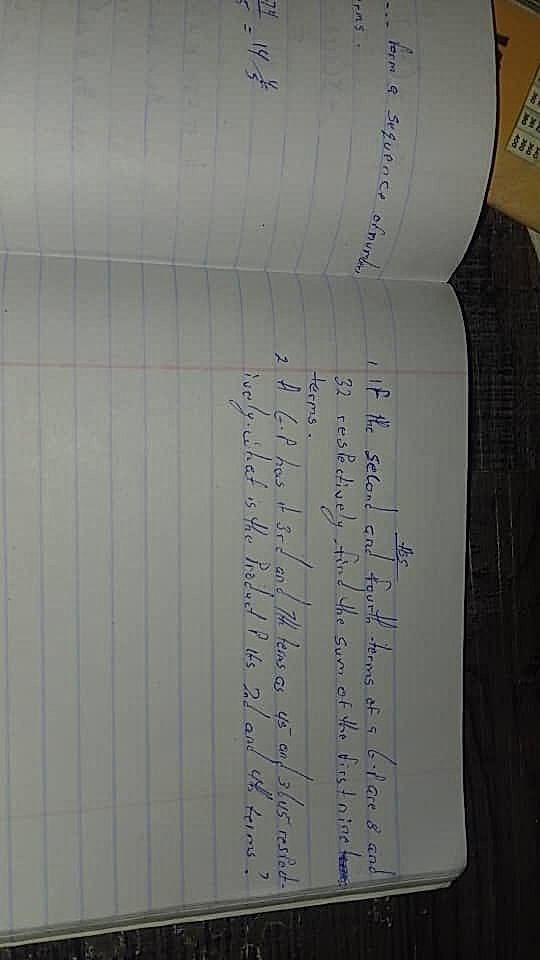 -- form a sequence of numb
rms.
= 14 4/5
Ass
1, If the second and fourth terms of a G.P are 8 and
32 respectively, find the sum of the first nine
terms.
2 A G.P has it 3rd and 7th terms as 45 and 3645 respect-
ively. what is the Product f its 2nd and 4th terms?